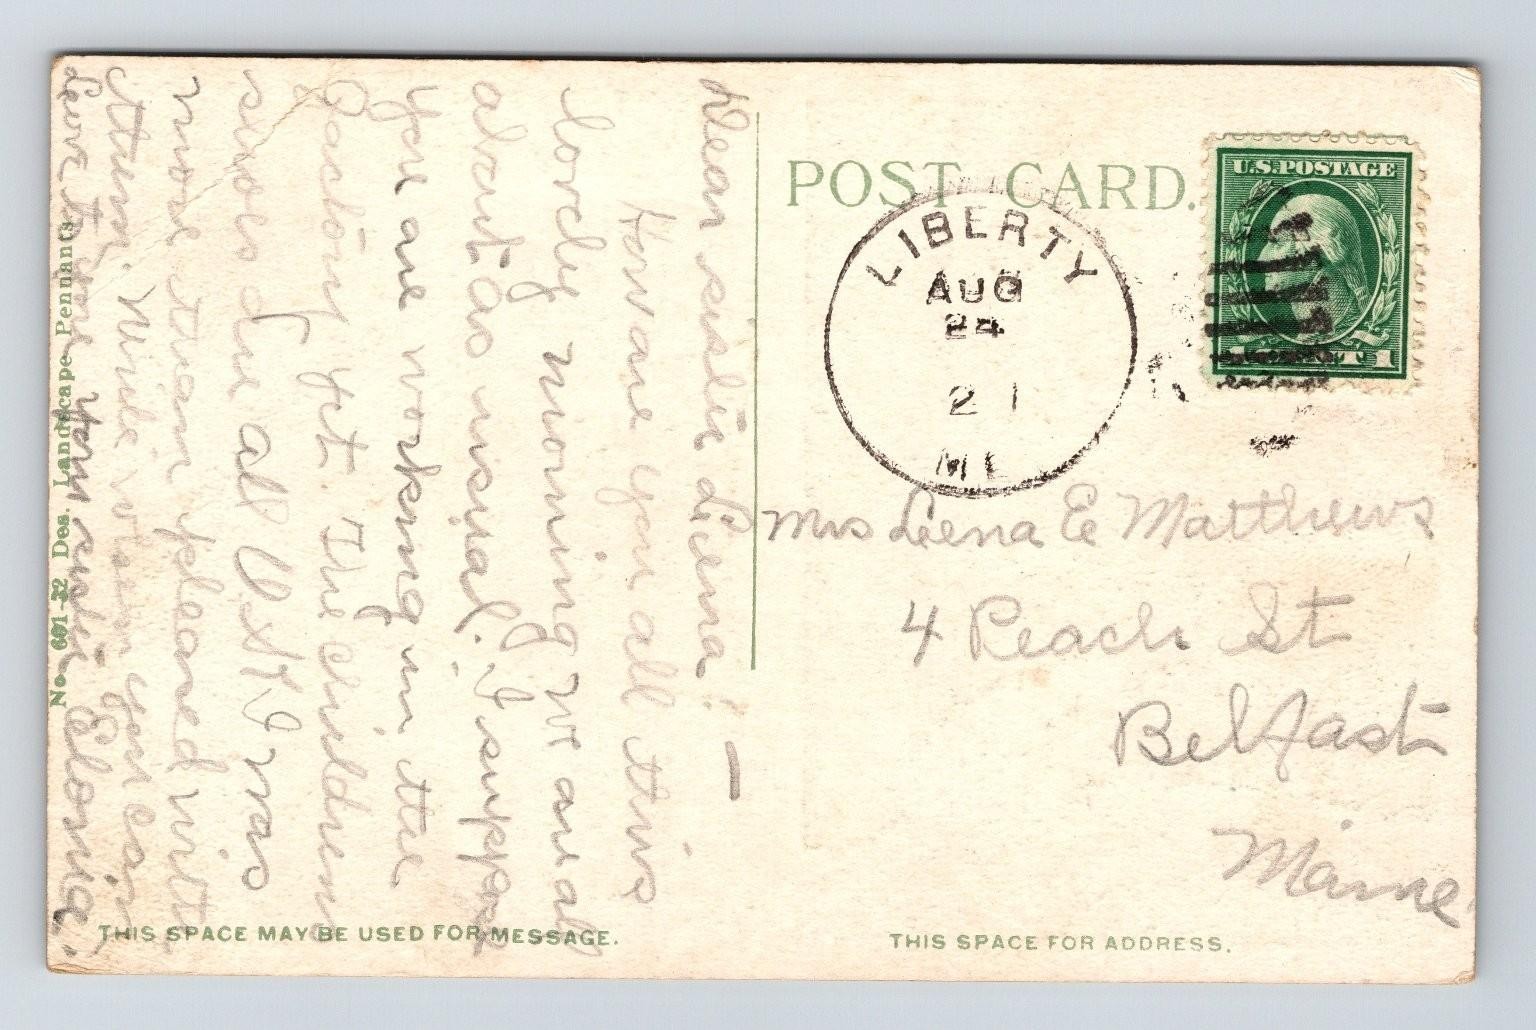 POST CARD.
U.S. POSTAGE
LIBERTY
AUG
24
21
ME
Mrs Leena E Matthews
4 Peach St
Belfast
Maine
THIS SPACE FOR ADDRESS.
Dear sister Leena! —
How are you all this
lovely morning we are all
about as usual. I suppose
you are working in the
factory yet. The children
shoes are all O.K. I was
more than pleased with
them. Write when you can
Love to you your sister Elona.
THIS SPACE MAY BE USED FOR MESSAGE.
No. 601-32 Des. Landscape Pennants